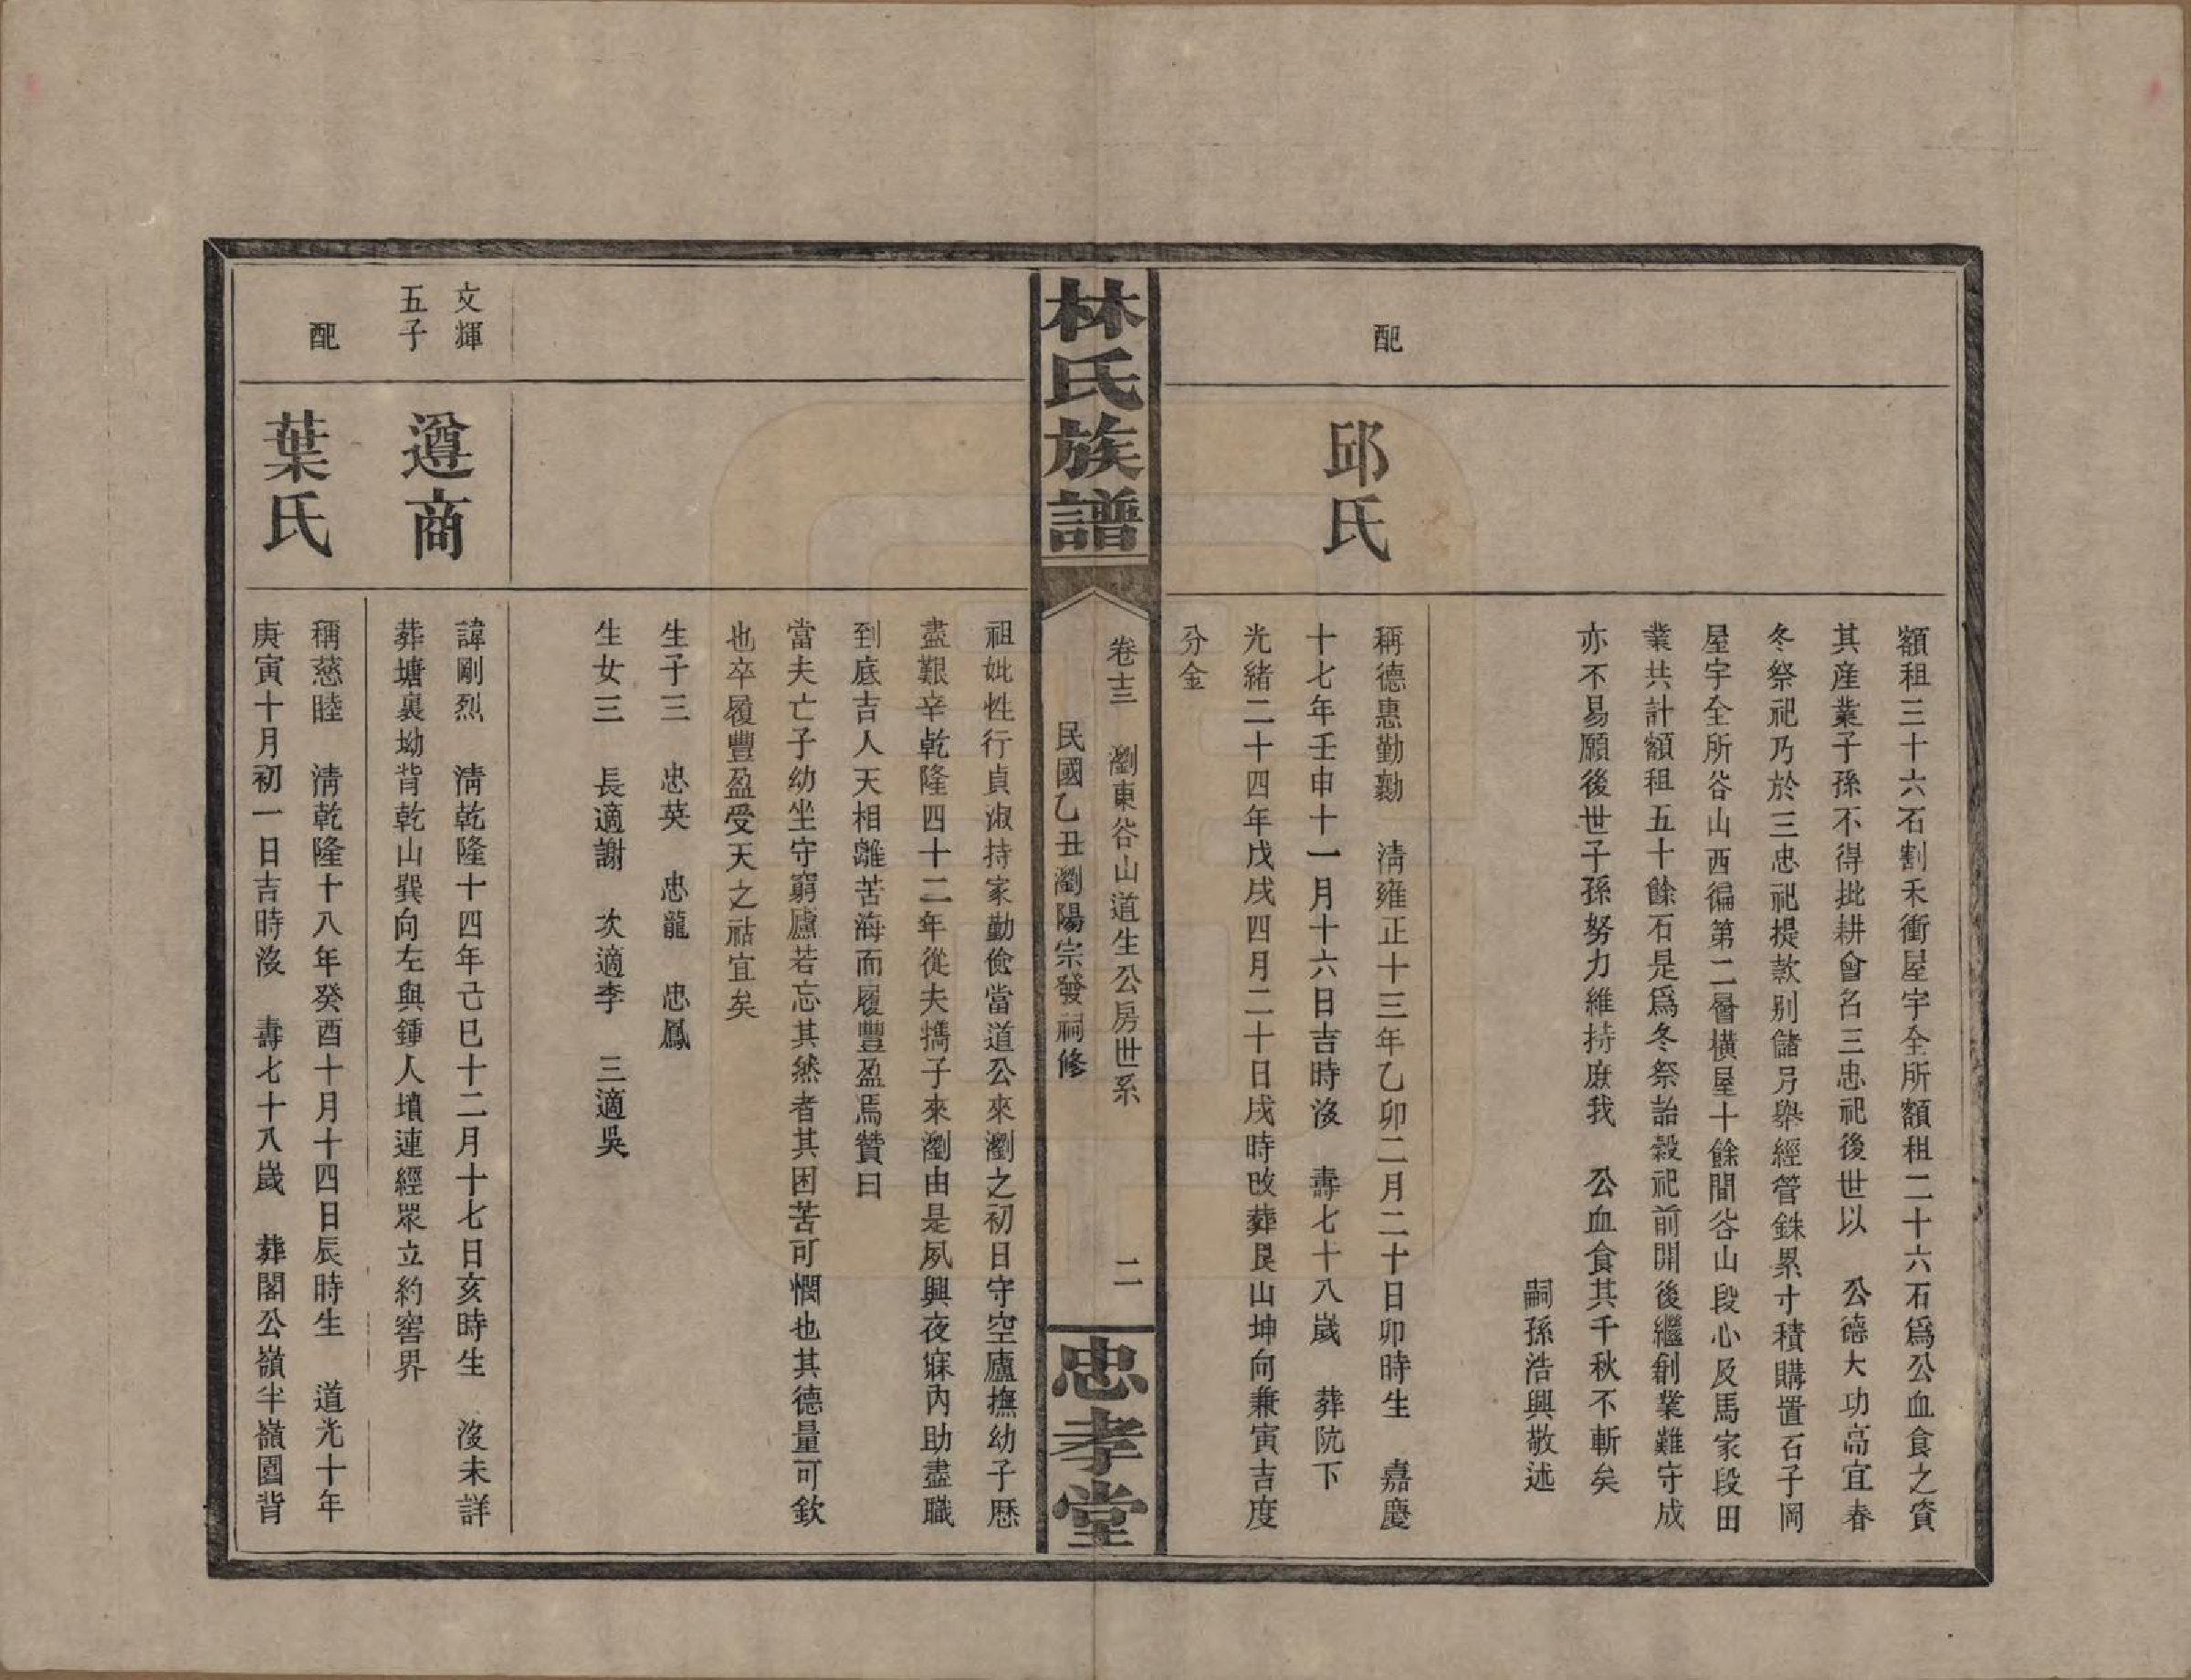 額租三十六石割禾衝屋宇全所額租二十六石爲公血食之資
其産業子孫不得批耕會名三忠祀後世以　公德大功高宜春
冬祭祀乃於三忠祀提款别儲另舉經管銖累寸積購置石子岡
屋宇全所谷山西徧第二層横屋十餘間谷山段心及馬家段田
業共計額租五十餘石是爲冬祭詒穀祀前開後繼創業難守成
亦不易願後世子孫努力維持庶我　公血食其千秋不斬矣
嗣孫浩興敬述
配
邱氏
稱德惠勤勷　淸雍正十三年乙卯二月二十日卯時生　嘉慶
十七年壬申十一月十六日吉時沒　壽七十八歲　葬阬下
光緒二十四年戊戌四月二十日戌時改葬艮山坤向兼寅吉度
分金
林氏族譜
卷十三　瀏東谷山道生公房世系　二
民國乙丑瀏陽宗發祠修
忠孝堂
祖妣性行貞淑持家勤儉當道公來瀏之初日守空廬撫幼子歷
盡艱辛乾隆四十二年從夫攜子來瀏由是夙興夜寐內助盡職
到底吉人天相離苦海而履豐盈焉贊曰
當夫亡子幼坐守窮廬若忘其然者其困苦可憫也其德量可欽
也卒履豐盈受天之祜宜矣
生子三　忠英　忠龍　忠鳳
生女三　長適謝　次適李　三適吳
文輝
五子
遵商
諱剛烈　淸乾隆十四年己巳十二月十七日亥時生　沒未詳
葬塘裏坳背乾山巽向左與鍾人墳連經眾立約窖界
配
葉氏
稱慈睦　淸乾隆十八年癸酉十月十四日辰時生　道光十年
庚寅十月初一日吉時沒　壽七十八歲　葬閣公嶺半嶺園背